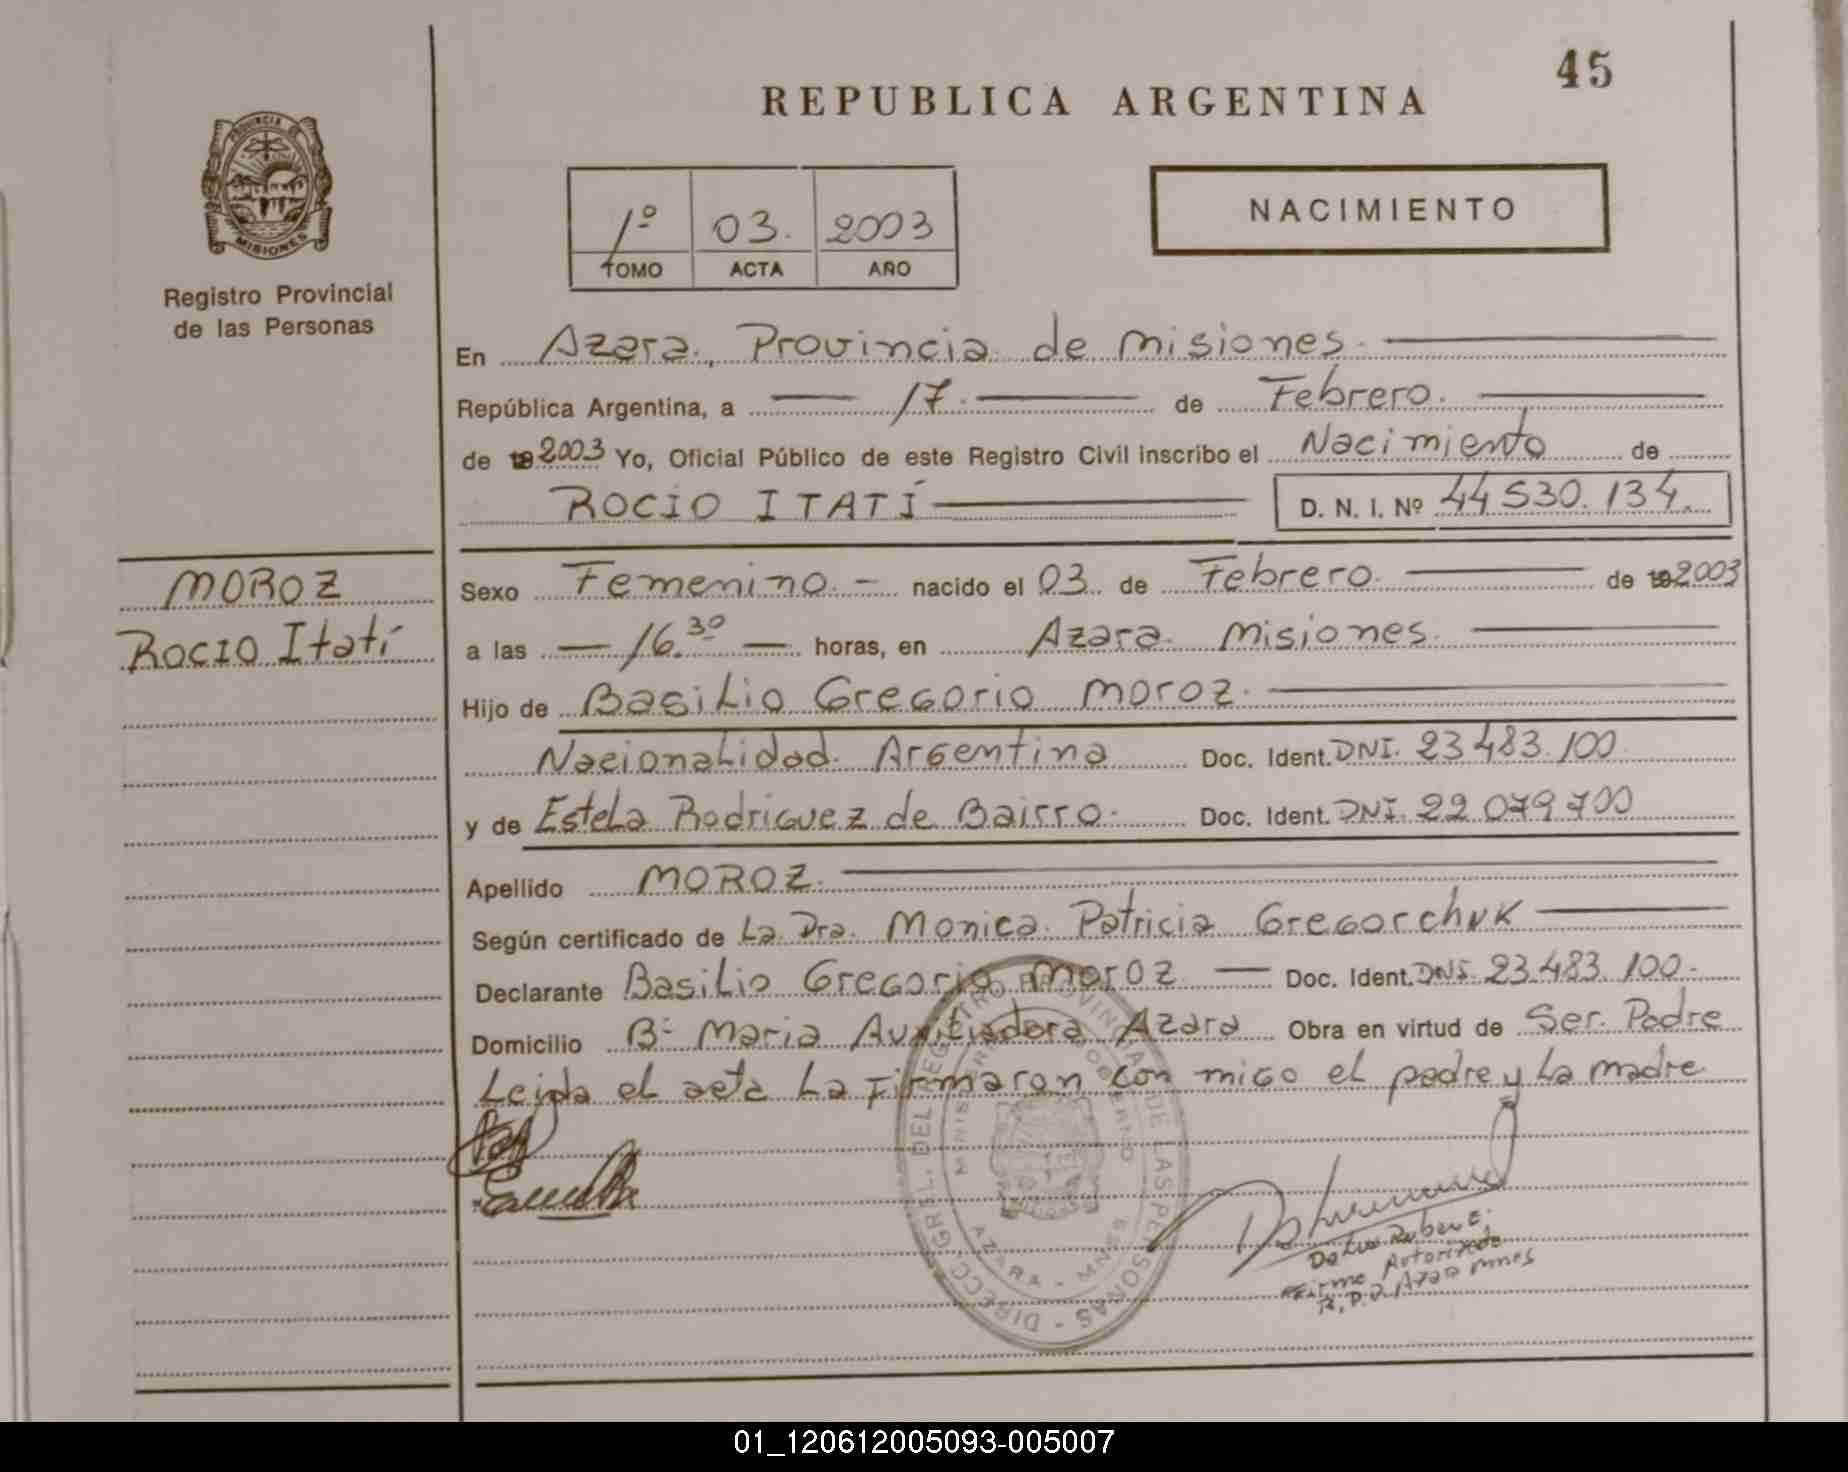 45
REPUBLICA ARGENTINA
PROVINCIA DE
MISIONES
Registro Provincial
de las Personas
NACIMIENTO
1º 03. 2003
TOMO ACTA AÑO
En Azara, Provincia de Misiones.
República Argentina, a 17. de Febrero.
de 19 2003 Yo, Oficial Público de este Registro Civil inscribo el Nacimiento de
ROCIO ITATÍ D. N. I. Nº 44530.134.
MOROZ
Rocio Itatí
Sexo Femenino. nacido el 03. de Febrero. de 19 2003
a las 16.30 horas, en Azara Misiones.
Hijo de Basilio Gregorio Moroz.
Nacionalidad Argentina Doc. Ident. DNI. 23 483.100
y de Estela Rodriguez de Bairro. Doc. Ident. DNI. 22 079 700
Apellido MOROZ.
Según certificado de La Dra. Monica Patricia Gregorchuk
Declarante Basilio Gregorio Moroz Doc. Ident. DNI. 23.483.100.
Domicilio Bº Maria Auxiliadora Azara Obra en virtud de Ser. Padre
Leida el acta La Firmaron con migo el padre y La madre
DIRECC. GRAL. DEL REGISTRO PROVINCIAL DE LAS PERSONAS
MINISTERIO GOBIERNO
MISIONES
AZARA - MNES
Firma Autorizada
R.P.P. Azara Mnes
01_120612005093-005007